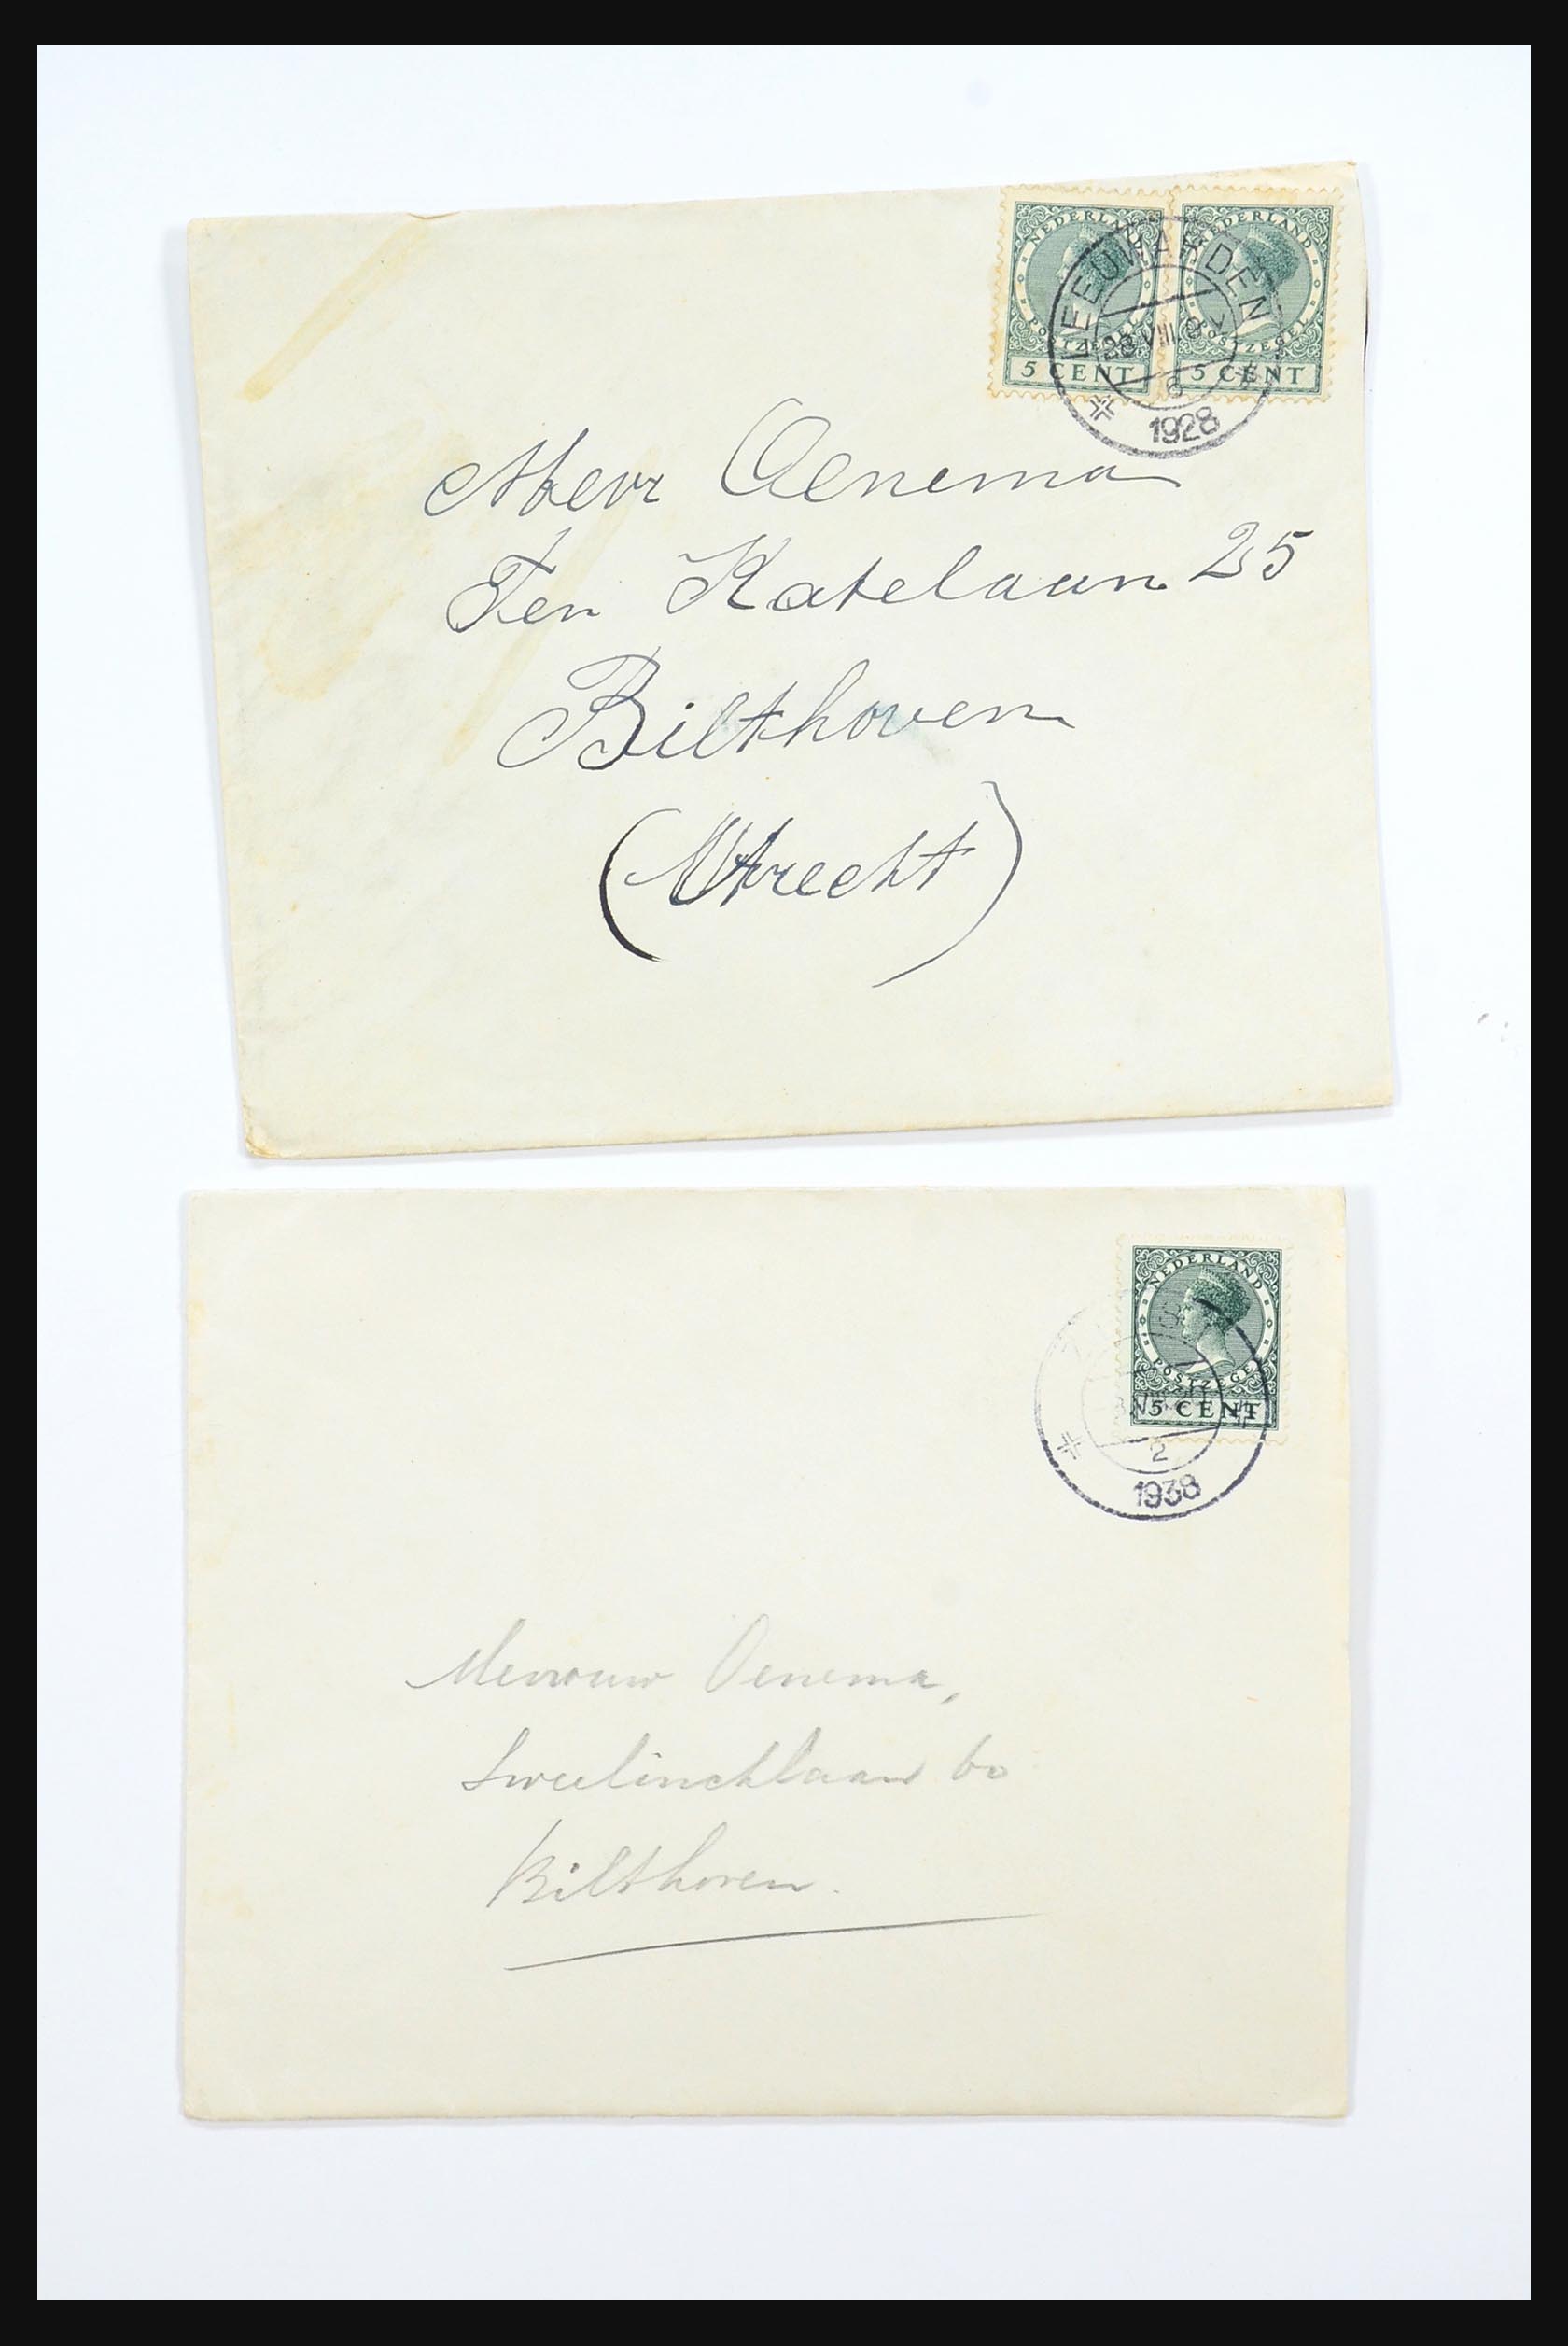 NEDERLAND NEDERLAND
POSTZEGEL POSTZEGEL
5 CENT 5 CENT
LEEUWARDEN
28 VIII
6
1928
Mevr Oenema
Ten Katelaan 25
Bilthoven
(Utrecht)
NEDERLAND
POSTZEGEL
5 CENT
2
1938
Mevrouw Oenema,
Sweelincklaan 60
Bilthoven.